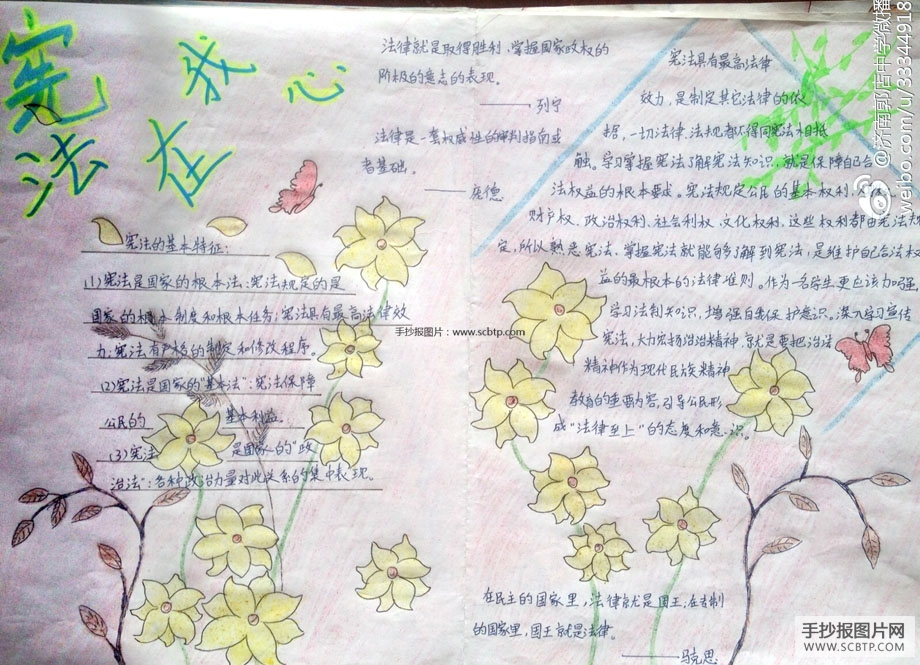 宪法在我心
法律就是取得胜利,掌握国家政权的
阶极的意志的表现。
——列宁
法律是一套权威性的审判指南或
者基础。
——庞德
宪法的基本特征:
(1)宪法是国家的根本法:宪法规定的是
国家的根本制度和根本任务;宪法具有最高法律效
力;宪法有严格的制定和修改程序。
(2)宪法是国家的"基本法":宪法保障
公民的 基本利益
(3)宪法 是国家的"政
治法":各种政治力量对此关系的集中表现。
宪法具有最高法律
效力,是制定其它法律的依
据,一切法律、法规都不得同宪法相抵
触。学习掌握宪法了解宪法知识,就是保障自己合
法权益的根本要求。宪法规定公民的基本权利,
财产权、政治权利、社会利权、文化权利,这些权利都由宪法规
定,所以熟悉宪法、掌握宪法就能够了解到宪法,是维护自己合法权
益的最根本的法律准则。作为一名学生更应该加强,
学习法制知识,增强自我保护意识。深入学习宣传
宪法,大力宏扬法治精神,就是要把法治
精神作为现代民族精神
教育的重要内容,引导公民形
成"法律至上"的态度和意识。
在民主的国家里,法律就是国王;在专制
的国家里,国王就是法律。
——马克思
手抄报图片:www.scbtp.com
@济南郭店中学微播
weibo.com/u/33344918
手抄报图片网
WWW.SCBTP.COM